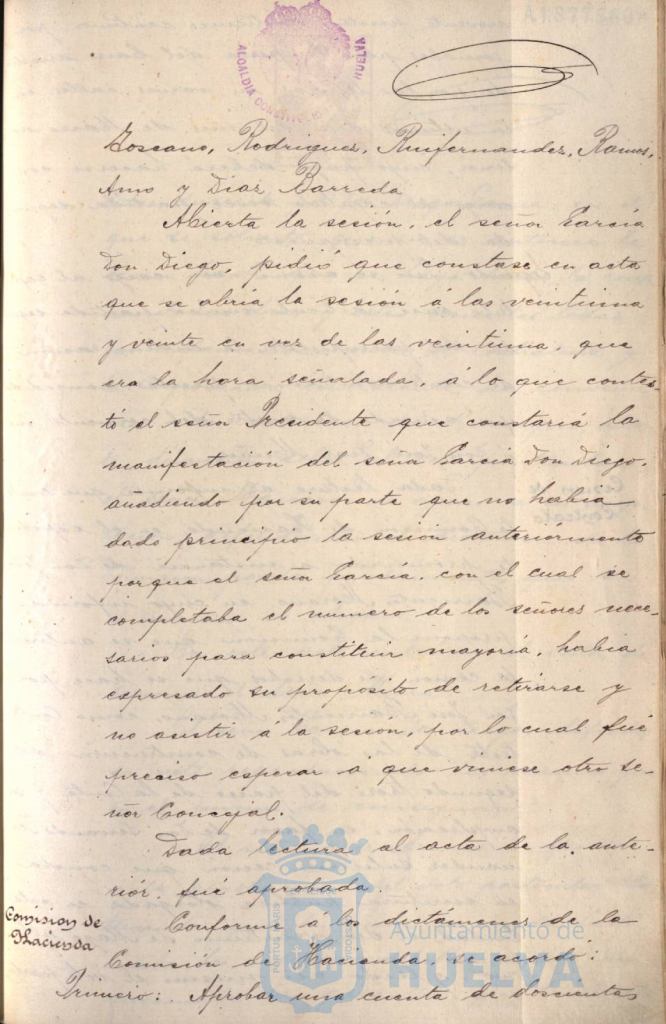 A1877560*
ALCALDIA CONSTITUCIONAL HUELVA
Toscano, Rodriguez, Ruifernandez, Ramos,
Amo y Diaz Barreda
Abierta la sesión, el señor García
Don Diego, pidió que constase en acta
que se abría la sesión á las veintiuna
y veinte en vez de las veintiuna, que
era la hora señalada, á lo que contes-
tó el señor Presidente que constaría la
manifestación del señor García Don Diego,
añadiendo por su parte que no habia
dado principio la sesión anteriormente
porque el señor García, con el cual se
completaba el número de los señores nece-
sarios para constituir mayoría, habia
expresado su propósito de retirarse y
no asistir á la sesión, por lo cual fué
preciso esperar á que viniese otro se-
ñor Concejal.
Dada lectura al acta de la ante-
riór, fué aprobada.
Comision de
Hacienda
Conforme á los dictámenes de la
Comisión de Hacienda, se acordó:
Primero: Aprobar una cuenta de doscientas
Ayuntamiento de
HUELVA